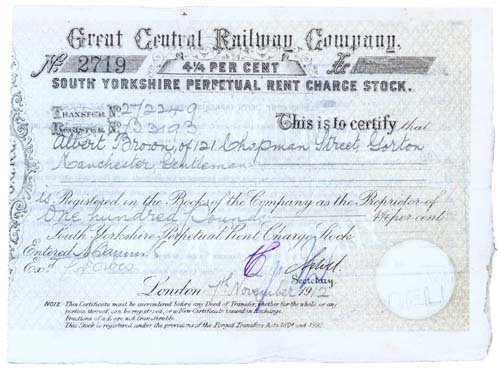 Great Central Railway Company.
No. 2719 4¼ PER CENT £
SOUTH YORKSHIRE PERPETUAL RENT CHARGE STOCK.
TRANSFER No. 2/2249
REGISTER No. This is to certify that
Albert Brown, of 121 Chapman Street, Gorton
Manchester, Gentleman
is Registered in the Books of the Company as the Proprietor of
One hundred Pounds 4¼ per cent
South Yorkshire Perpetual Rent Charge Stock
Entered
Exd.
Secretary.
London 7th November 1912
NOTE This Certificate must be surrendered before any Deed of Transfer, whether for the whole or any
portion thereof, can be registered, or a New Certificate issued in exchange.
Fractions of a £ are not transferable.
This Stock is registered under the provisions of the Forged Transfers Acts 1891 and 1892.